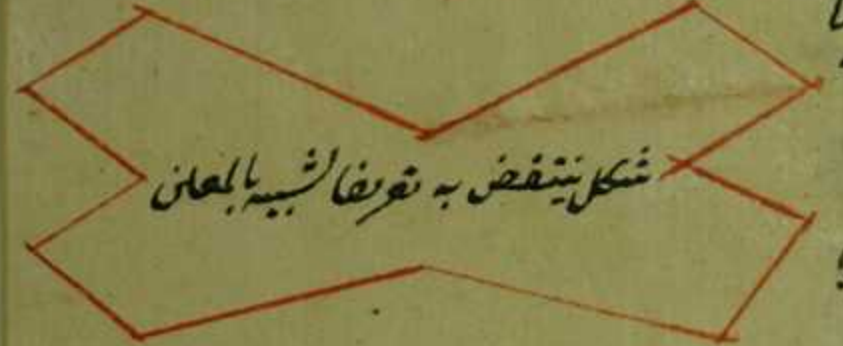 شكل ينتقض به تعريف الشبيه بالمعين